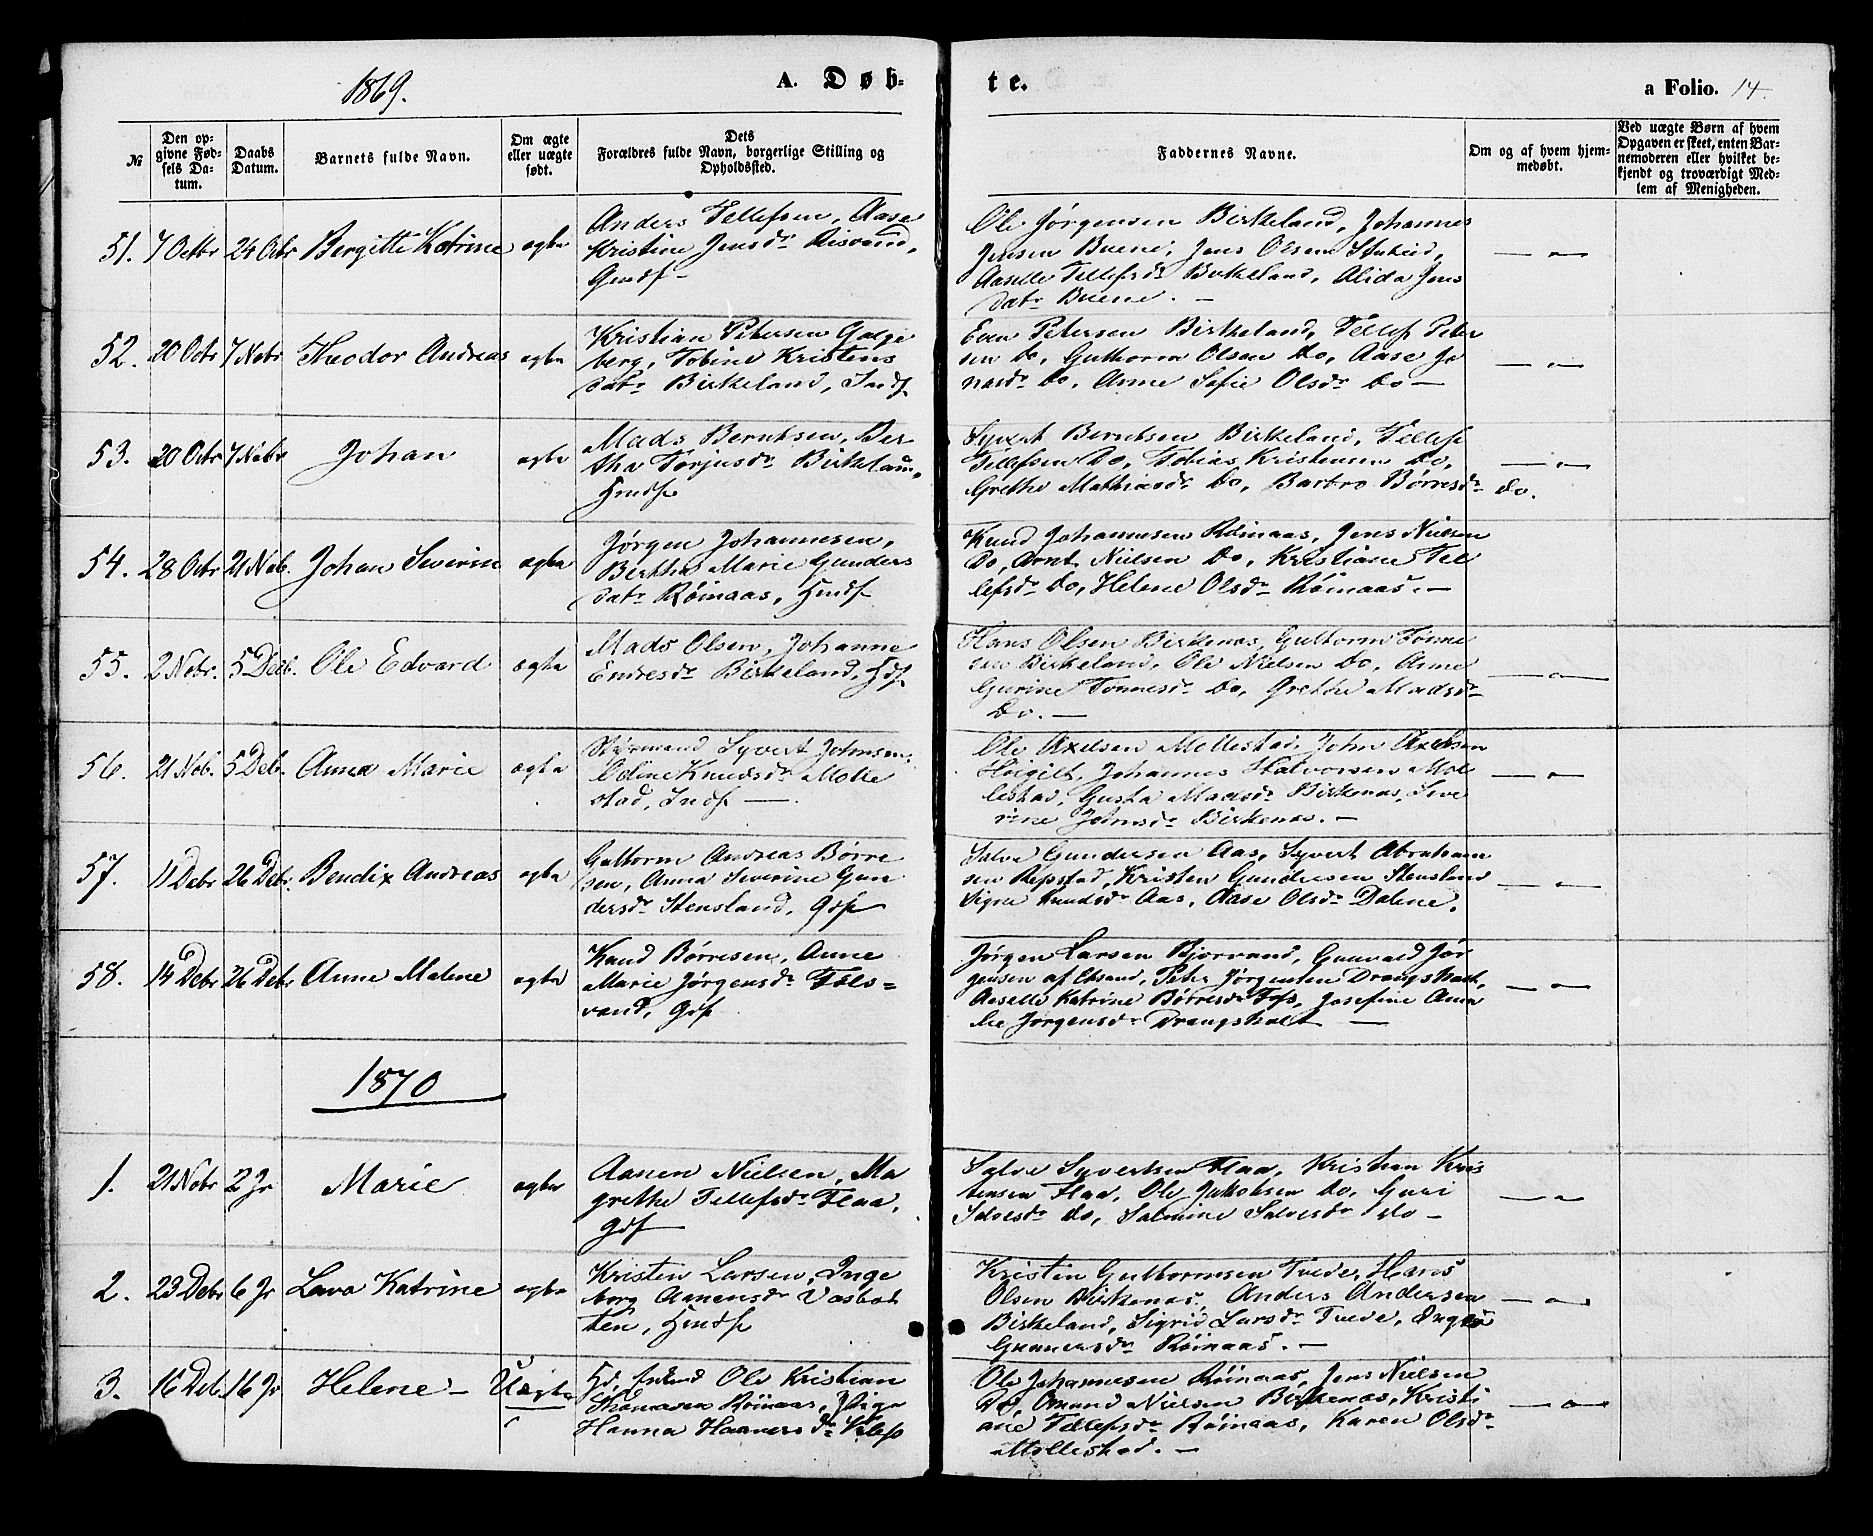 1869.
A. Døb-
te.
a Folio. 14.
№
Den op-
givne Fød-
sels Da-
tum.
Daabs
Datum.
Barnets fulde Navn.
Om ægte
eller uægte
født.
Dets
Forældres fulde Navn, borgerlige Stilling og
Opholdssted.
Faddernes Navne.
Om og af hvem hjem-
medøbt.
Ved uægte Børn af hvem
Opgaven er skeet, enten Bar-
nemoderen eller hvilket be-
kjendt og troværdigt Med-
lem af Menigheden.
51. 7 Octbr 24 Octr Bergitte Katrine ægte
Anders Tellefsen, Aase
Kristine Jensdr Risvand,
Ole Jørgensen Birkeland, Johannes
Jensen Buene, Jens Olsen
Aaselle Tellefsdr Birkeland, Alida Jens
datr Buene. —
52. 20 Octr 7 Nobr Theodor Andreas ægte
Kristian Petersen Galge
berg, Tobine Kristens
datr Birkeland, Indf.
Even Petersen Birkeland, Tellef Peter
sen do, Guttorm Olsen do, Aase Jo
nasdr do, Anne Sofie Olsdr do —
53. 20 Octr 7 Nobr Johan ægte
Mads Berntsen, Ber
tha Torjusdr Birkeland,
Hmdf
Syvert Berntsen Birkeland, Tellef
Tellefsen do, Tobias Kristensen do,
Grethe Mathiasdr do, Barbro Børresdr do.
54. 28 Octr 21 Nob. Johan Severin ægte
Jørgen Johannesen,
Berthe Marie Gunders
datr Røinaas, Hmdf
Knud Johannesen Røinaas, Jens Nielsen
do, Arnt Nielsen do, Kristiane Tel
lefsdr do, Helene Olsdr Røinaas. —
55. 2 Nobr. 5 Decb. Ole Edvard ægte
Mads Olsen, Johanne
Endresdr Birkeland,
Hans Olsen Birkenes, Guttorm Tønne
sen Birkeland, Ole Nielsen do, Anne
Gurine Tønnesdr do, Grethe Madsdr
do. —
56. 21 Nob. 5 Deb. Anna Marie ægte
Styrmand Syvert Johnsen,
Odine Knudsdr Molle
stad, Indf —
Ole Axelsen Mollestad, John Axelsen
Høigilt, Johannes Halvorsen Mol
lestad, Gusta Madsdr Birkenes, Seve
rine Johnsdr Birkenes. —
57. 11 Debr 26 Deb. Bendix Andreas ægte
Guttorm Andreas Børre
sen, Anna Severine Gun
dersdr Stensland, Gdf
Salve Gundersen Aas, Syvert Abraham
sen Repstad, Kristen Gundersen Stensland
Signe Knudsdr Aas, Aase Olsdr Dalene.
58. 14 Debr 26 Debr Anne Malene ægte
Knud Børresen, Anne
Marie Jørgensdr Fols=
vand, Gdf
Jørgen Larsen Bjorvand, Gunvald Jør
gensen af Chrsand, Peter Jørgensen Drangsholt,
Aaselle Katrine Børresdr Foss, Josefine Ama
lie Jørgensdr Drangsholt —
1870
1. 21 Nobr 2 Jr Marie ægte
Aanen Nielsen, Ma
grethe Tellefsdr Flaa,
Gdf
Salve Syvertsen Flaa, Kristian Kris
tensen Flaa, Ole Jakobsen do, Guri
Salvesdr do, Salmine Salvesdr do —
2. 23 Debr 6 Jr Lava Katrine ægte
Kristen Larsen, Inge
borg Aanensdr Væsbot
ten, Hmdf
Kristen Guttormsen Tvede, Hans
Olsen Birkenes, Anders Andersen
Birkeland, Sigrid Larsdr Tvede,
Gunnersdr Røinaas. —
3. 16 Deb. 16 Jr Helene — Uægte
Ole Kristian
Thomasen Røinaas, Pige
Hanna Haaversdr
Ole Johannesen Røinaas, Jens Nielsen
do, Omund Nielsen Birkenes, Kristi
ane Tellefsdr Røinaas, Karen Olsdr
Mollestad. —